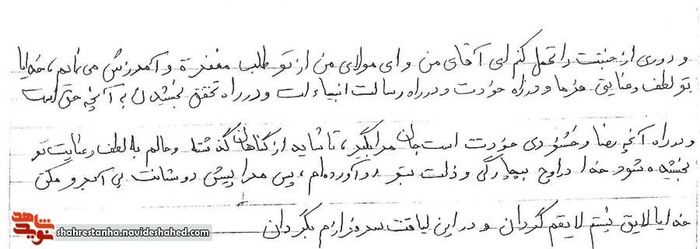 و دوری از جنبت را تحمل کنم ای آقای من و ای مولای من از تو طلب مغفرة و آمرزش می نمایم، خدایا
تو لطف و عنایتی فرما و در راه خودت و در راه رسالت انبیاءات و در راه تحقق بخشیدن به آنچه حق است
و در راه آنچه رضا و خشنودی خودت است جان مرا بگیر، تا شاید از گناهان گذشته و حالم با لطف و عنایت تو
بخشیده شود خدا در اوج بیچارگی و ذلت بتو رو آورده‌ام، پس مرا پیش دوستانت بی آبرو مکن
خدایا لایق نیستم لایقم گردان و در این لیاقت سرفرازم بگردان
نوید شاهد
shahrestanha.navideshahed.com